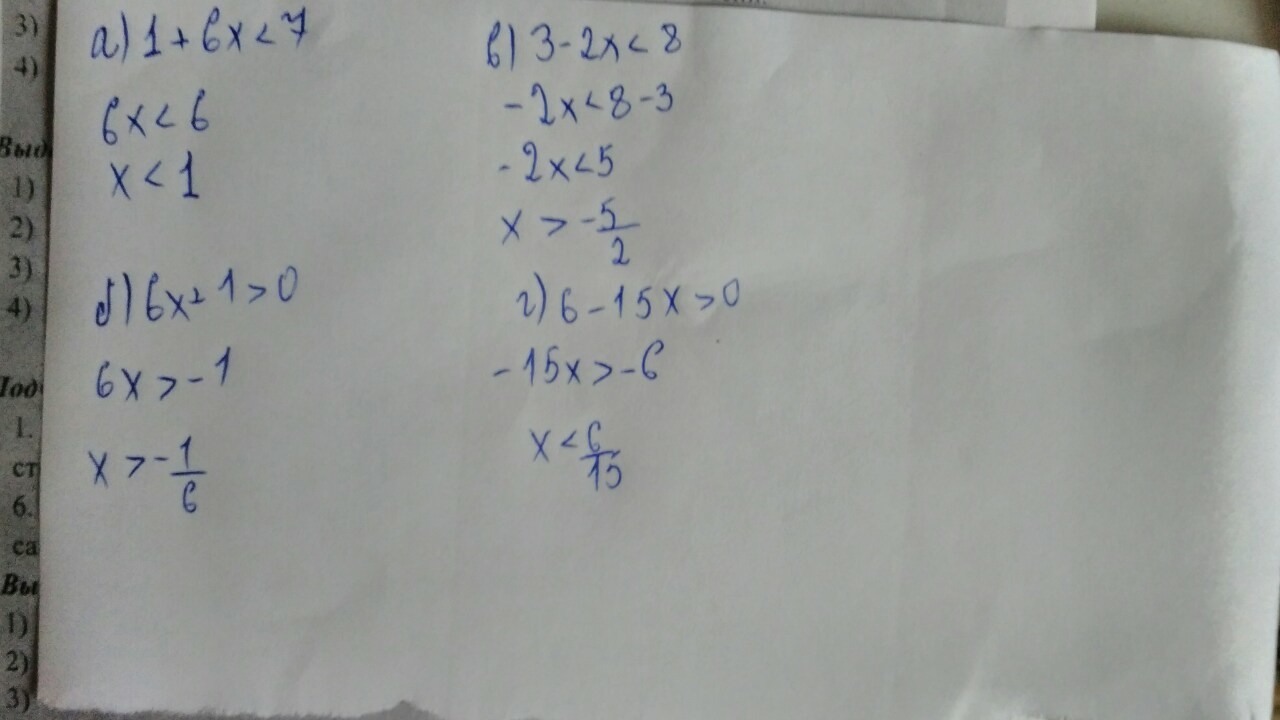 3)
4)
Выд
1)
2)
3)
4)
Под
1.
ст
6.
са
Вы
1)
2)
3)
а) 1 + 6x < 7
6x < 6
x < 1
б) 6x + 1 > 0
6x > -1
x > -1/6
в) 3 - 2x < 8
-2x < 8 - 3
-2x < 5
x > -5/2
г) 6 - 15x > 0
-15x > -6
x < 6/15